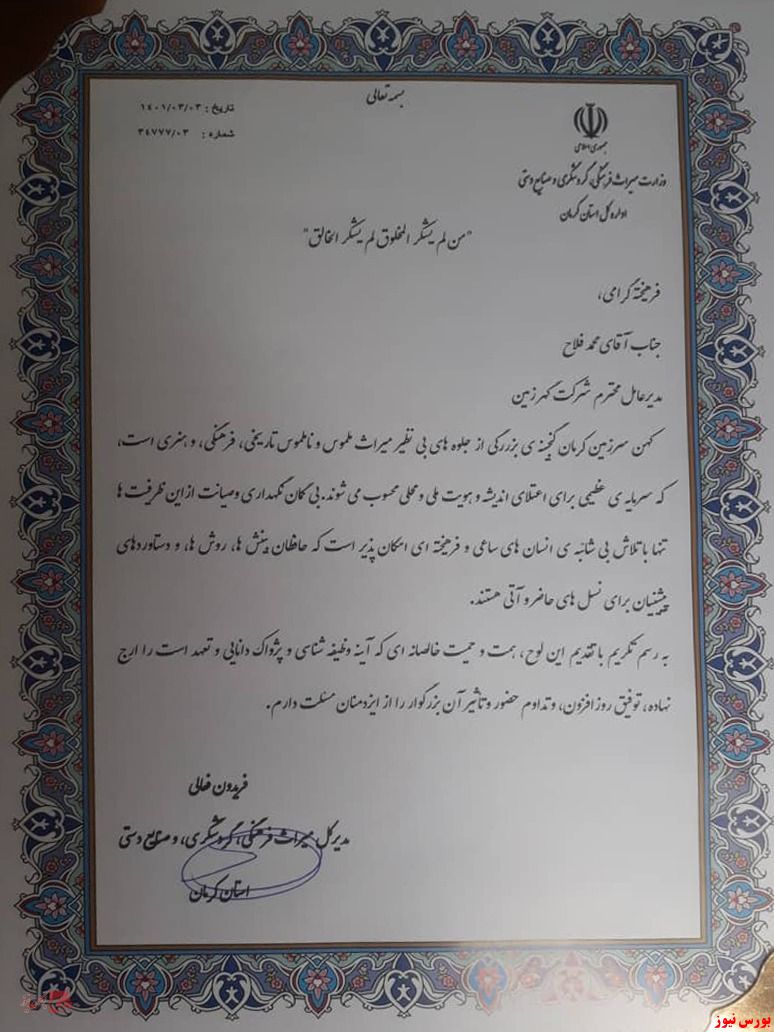 بسمه تعالی
تاریخ : ۱۴۰۱/۰۳/۰۳
شماره : ۳۴۷۷۷/۰۳
جمهوری اسلامی
وزارت میراث فرهنگی، گردشگری و صنایع دستی
اداره کل استان کرمان
"من لم یشکر المخلوق لم یشکر الخالق"
فرهیخته گرامی،
جناب آقای محمد فلاح
مدیرعامل محترم شرکت گهرزمین
کهن سرزمین کرمان گنجینه ی بزرگی از جلوه های بی نظیر میراث ملموس و ناملموس تاریخی، فرهنگی، و هنری است،
که سرمایه ی عظیمی برای اعتلای اندیشه و هویت ملی و محلی محسوب می شوند. بی گمان نگهداری و صیانت از این ظرفیت ها
تنها با تلاش بی شائبه ی انسان های ساعی و فرهیخته ای امکان پذیر است که حافظان بینش ها، روش ها، و دستاوردهای
پیشینیان برای نسل های حاضر و آتی هستند.
به رسم تکریم با تقدیم این لوح، همت و حمیت خالصانه ای که آینه وظیفه شناسی و پژواک دانایی و تعهد است را ارج
نهاده، توفیق روزافزون، و تداوم حضور و تاثیر آن بزرگوار را از ایزدمنان مسئلت دارم.
فریدون فعالی
مدیرکل میراث فرهنگی، گردشگری، و صنایع دستی
استان کرمان
بورس نیوز